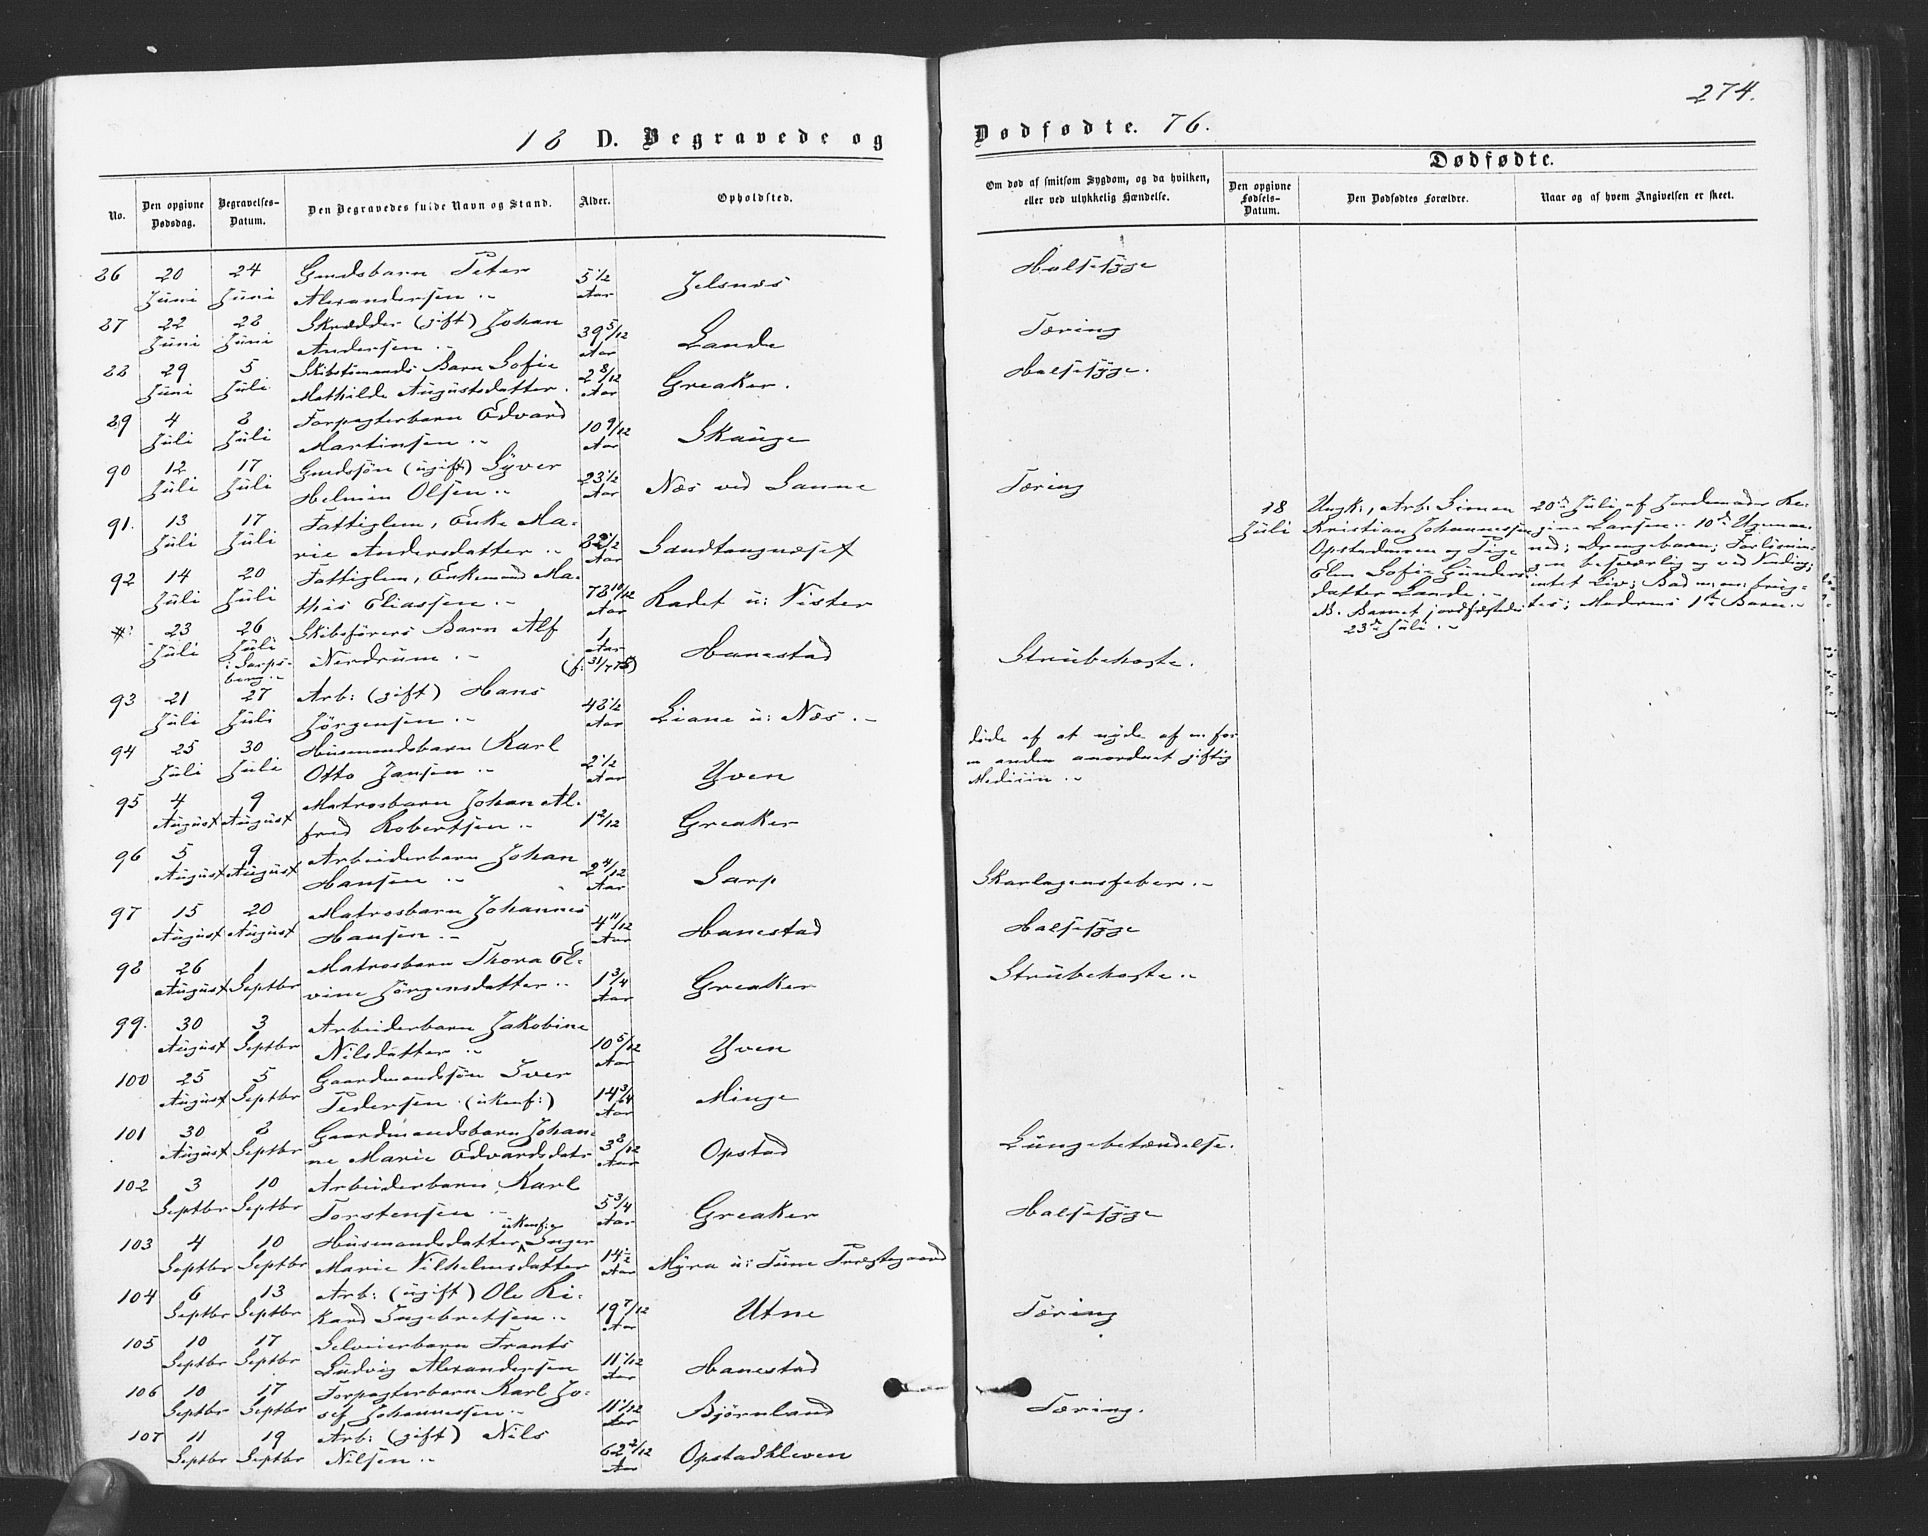 274.
18 D. Begravede og Dødfødte. 76.
Dødfødte.
No.
Den opgivne Dødsdag.
Begravelses-Datum.
Den Begravedes fulde Navn og Stand.
Alder.
Opholdsted.
Om død af smitsom Sygdom, og da hvilken, eller ved ulykkelig Hændelse.
Den opgivne Fødsels-Datum.
Den Dødfødtes Forældre.
Naar og af hvem Angivelsen er skeet.
86 20 24 Gmdsbarn Peter 5 1/2 Halssyge
Juni Juni Alexandersen Aar Jelsnæs
87 22 28 Skrædder (gift) Johan 39 5/12 Tæring
Juni Juni Andersen Aar Lande
88 29 5 Skibstmands Barn Sofie 2 8/12 Halssyge.
Juni Juli Mathilde Augustsdatter. Aar Greaker.
89 4 8 Forpagterbarn Edvard 10 9/12
Juli Juli Martinsen Aar Skauge
90 12 17 Gmdssøn (ugift) Syver 23 1/2 Tæring
Juli Juli Helmin Olsen Aar Næs ved Sanne
91. 13 17 Fattiglem, Enke Ma-
Juli Juli rie Andersdatter Aar Sandtangnæset
92 14 20 Fattiglem, Enkemand Ma- 78 10/12
Juli Juli this Eliassen Aar Kadet u: Vister
23 26 Skibsførers Barn Alf 1 Aar
Juli Juli Nerdrum (f: 31/7 75) Hanestad Strubehoste.
i Sarps-
borg
93 21 27 Arb: (gift) Hans 48 1/2
Juli Juli Jørgensen Aar Liane u: Næs.
94 25 30 Husmandsbarn Karl 2 1/2 døde af at nyde af en for
Juli Juli Otto Jansen Aar Yven en anden anordnet giftig
Medicin
95 4 9 Matrosbarn Johan Al-
August August fred Robertsen 1 2/12 Greaker
96 5 9 Arbeiderbarn Johan 2 4/12
August August Hansen Aar Sarp Skarlagensfeber.
97 15 20 Matrosbarn Johannes 4 11/12 Halssyge
August August Hansen Aar Hanestad
98 26 1 Matrosbarn Thora El- 1 3/4 Strubehoste
August Septbr vine Jørgensdatter Aar Greaker
99. 30 3 Arbeiderbarn Jakobine 10 5/12
August Septbr Nilsdatter Aar Yven
100 25 5 Gaardmandssøn Iver 14 3/4
August Septbr Pedersen (ukonf:) Aar Minge
101 30 8 Gaardmandsbarn Johan- 3 8/12 Lungebetændelse.
August Septbr ne Marie Edvardsdatr Aar Opstad
102 3 10 Arbeiderbarn Karl 5 3/4 Halssyge
Septbr Septbr Torstensen Aar Greaker
103 4 10 Husmandsdatter ukonf: Inger 14 1/2
Septbr Septbr Marie Vilhelmsdatter Aar Myra u: Tune Præstegaard
104 6 13 Arb: (ugift) Ole Ri- 19 7/12 Tæring
Septbr Septbr kard Ingebretsen Aar Utne
105 10 17 Selveierbarn Frants 11 1/12
Septbr Septbr Ludvig Alexandersen Aar Hanestad
106 10 17 Forpagterbarn Karl Jo- 11 1/12 Tæring.
Septbr Septbr sef Johannessen Aar Bjørnland
107 11 19 Arb: (gift) Nils 62 2/12
Septbr Septbr Nilsen Aar Opstadkleven
18 Ungk:, Arb: Simen 20de Juli af Jordemoder Re-
Juli Kristian Johannessen gine Larsen. 10de Ugemaa-
Opstadmoen og Pige ned; Drengebarn; Forløsnin-
Elen Sofie Gunders- gen besværlig og ved Vending;
datter Lande. intet Liv; Bad m: m: frug-
B. Barnet jordfæstedes tes; Modrens 1ste Barn.
23de Juli.